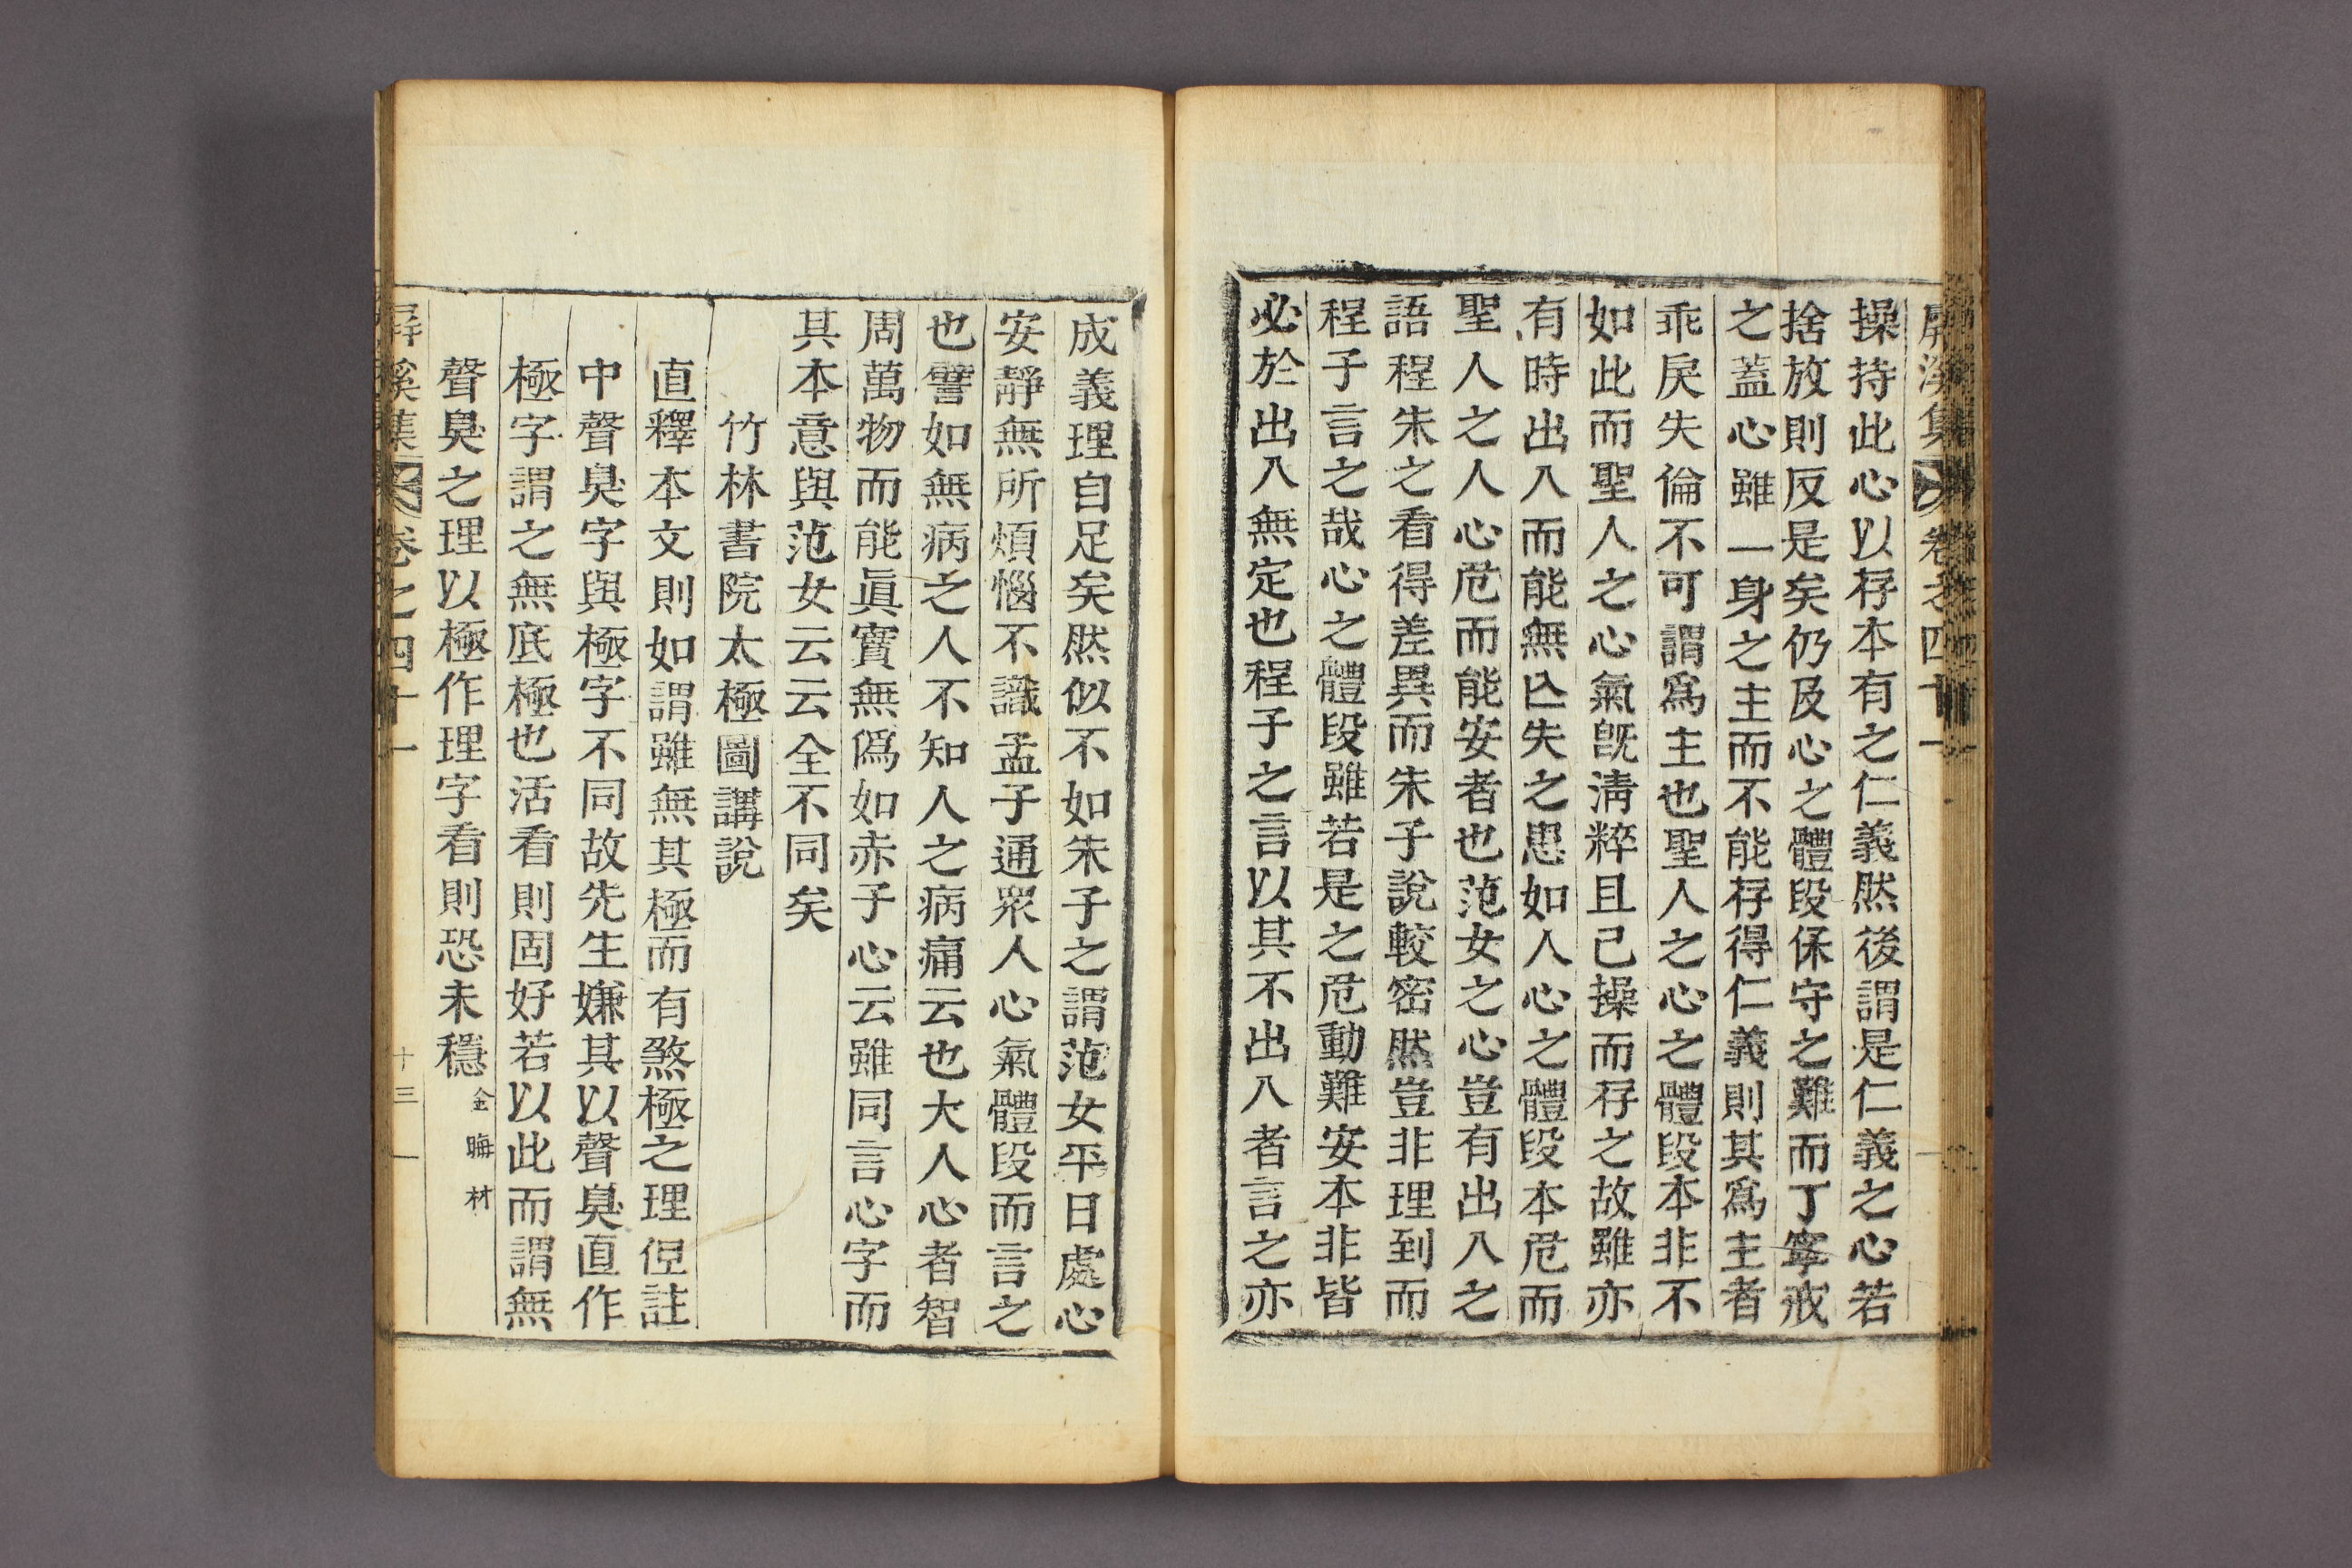 屛溪集 卷之四十一
操持此心以存本有之仁義然後謂是仁義之心若
捨放則反是矣仍及心之體段保守之難而丁寧戒
之蓋心雖一身之主而不能存得仁義則其爲主者
乖戾失倫不可謂爲主也聖人之心之體段本非不
如此而聖人之心氣旣淸粹且已操而存之故雖亦
有時出入而能無亾失之患如人心之體段本危而
聖人之人心危而能安者也范女之心豈有出入之
語程朱之看得差異而朱子說較密然豈非理到而
程子言之哉心之體段雖若是之危動難安本非皆
必於出入無定也程子之言以其不出入者言之亦
成義理自足矣然似不如朱子之謂范女平日處心
安靜無所煩惱不識孟子通眾人心氣體段而言之
也譬如無病之人不知人之病痛云也大人心者智
周萬物而能眞實無僞如赤子心云雖同言心字而
其本意與范女云云全不同矣
竹林書院太極圖講說
直釋本文則如謂雖無其極而有煞極之理但註
中聲臭字與極字不同故先生嫌其以聲臭直作
極字謂之無底極也活看則固好若以此而謂無
聲臭之理以極作理字看則恐未穩 金晦材
屛溪集 卷之四十一 十三